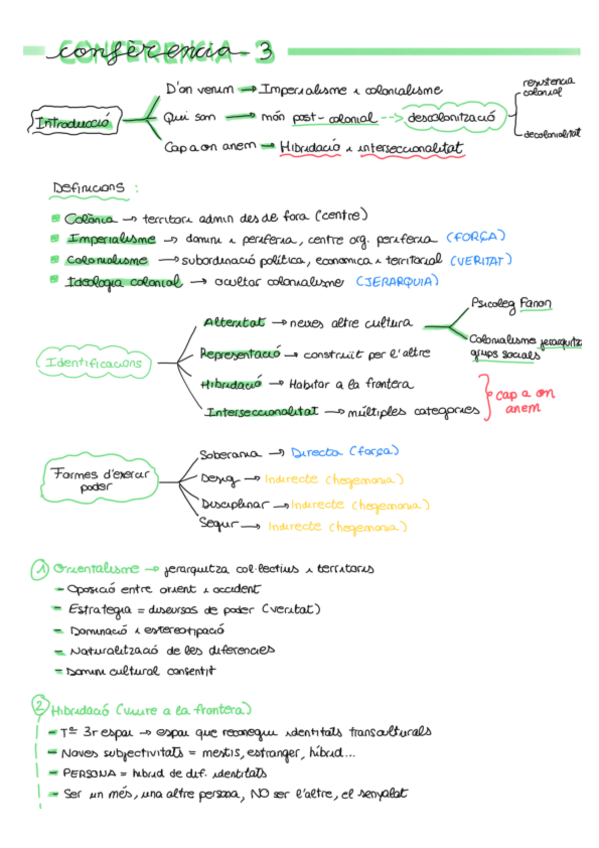 CONFERENCIA - 3
conferencia - 3
D'on venim → Imperialisme i colonialisme
Introducció
Qui som → món post-colonial --> descolonització
resistencia colonial
decolonialitat
Cap a on anem → Hibridació i interseccionalitat
Definicions :
Colònia → territori admin des de fora (centre)
Imperialisme → domini i periferia, centre org. periferia (FORÇA)
Colonialisme → subordinació política, economica i territorial (VERITAT)
Ideologia colonial → ocultar colonialisme (JERARQUIA)
Identificacions
Alteritat → neixes altre cultura
Psicoleg Fanon
Colonialisme jerarquitz
grups socials
Representació → construït per l'altre
Hibridació → Habitar a la frontera
Interseccionalitat → múltiples categories
cap a on
anem
Formes d'exercir
poder
Soberania → Directa (força)
Desig → Indirecte (hegemonia)
Disciplinar → Indirecte (hegemonia)
Segur → Indirecte (hegemonia)
1 Orientalisme → jerarquitza col·lectius i territoris
- Oposició entre orient i occident
- Estrategia = discursos de poder (veritat)
- Dominació i estereotipació
- Naturalització de les diferencies
- Domini cultural consentit
2 Hibridació (viure a la frontera)
- Tª 3r espai → espai que reconegui identitats transculturals
- Noves subjectivitats = mestis, estranger, híbrid...
- PERSONA = hibrid de dif. identitats
- Ser un més, una altre persona, NO ser l'altre, el senyalat